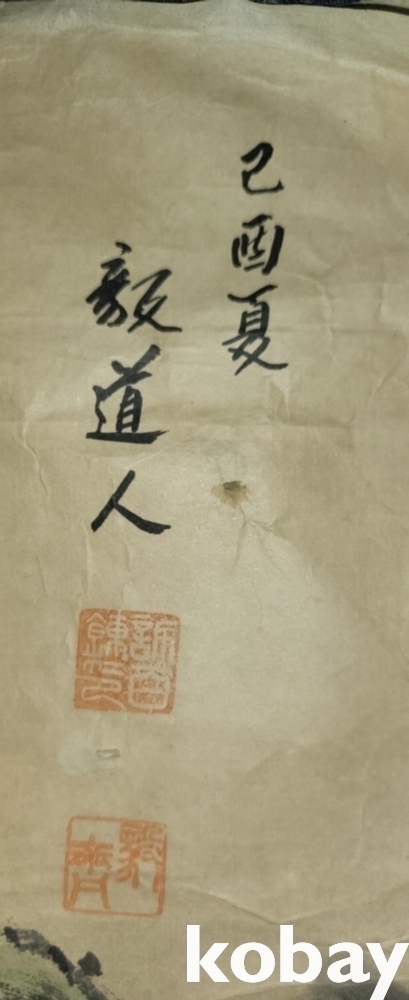 己酉夏
毅道人
毅齋
kobay